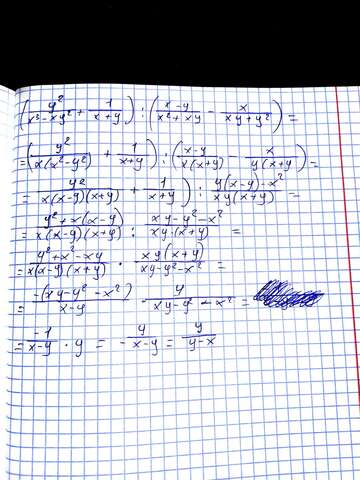 (y²/(x³-xy²) + 1/(x+y)) : ((x-y)/(x²+xy) - x/(xy+y²)) =
= (y²/(x(x²-y²)) + 1/(x+y)) : ((x-y)/(x(x+y)) - x/(y(x+y)) =
= (y²/(x(x-y)(x+y)) + 1/(x+y)) : (y(x-y)-x²)/(xy(x+y)) =
= (y²+x(x-y))/(x(x-y)(x+y)) : (xy-y²-x²)/(xy·(x+y)) =
= (y²+x²-xy)/(x(x-y)(x+y)) · (xy(x+y))/(xy-y²-x²) =
= (-(xy-y²-x²))/(x-y) · y/(xy-y²-x²) =
= -1/(x-y) · y = -y/(x-y) = y/(y-x)